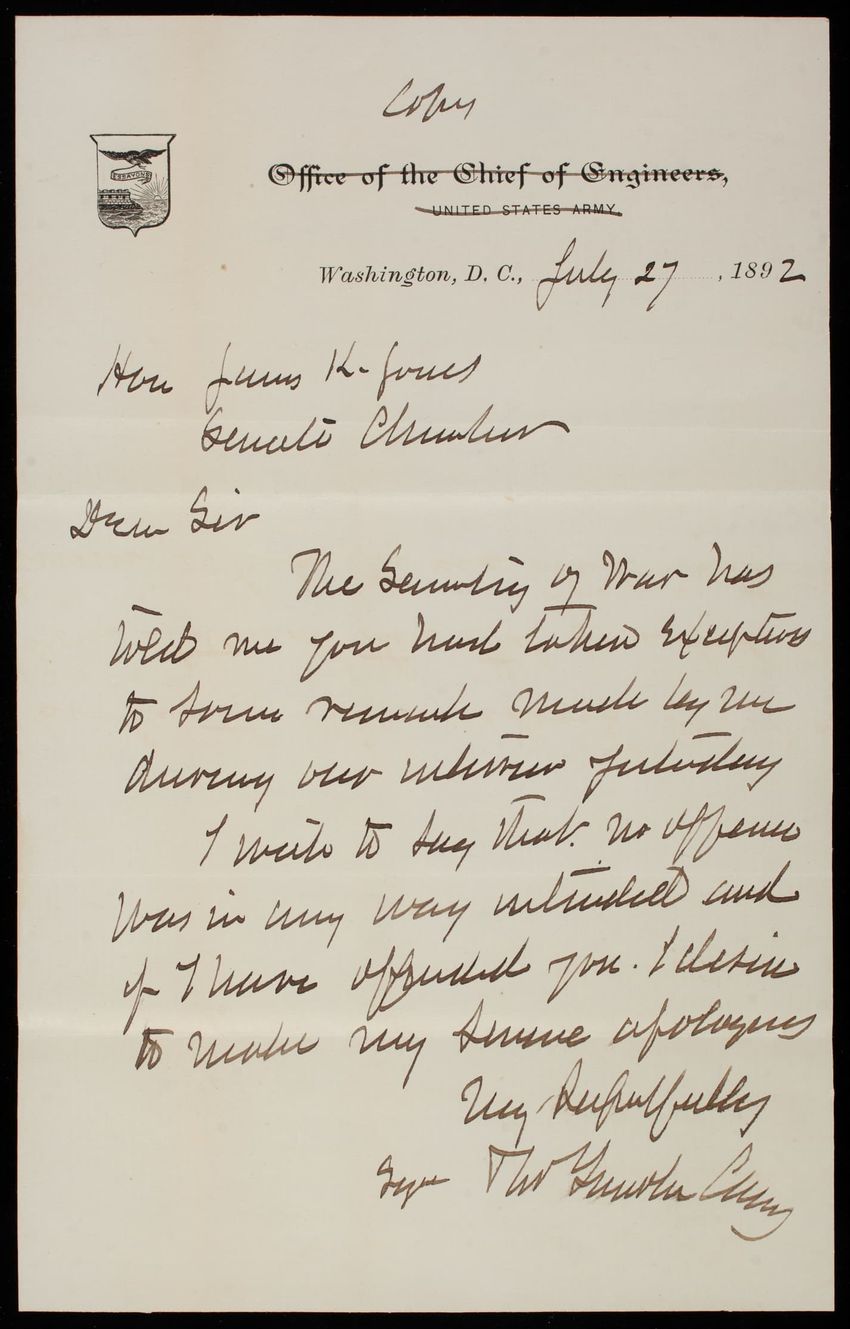 Copy
ESSAYONS
Office of the Chief of Engineers,
UNITED STATES ARMY.
Washington, D. C., July 27, 1892
Hon James K. Jones
Senate Chamber
Dear Sir
The Secretary of War has
told me you had taken exceptions
to some remark made by me
during our interview yesterday
I write to say that no offence
was in any way intended and
if I have offended you. I desire
to make my sincere apologies
Very Respectfully
Sgd Thos Lincoln Casey